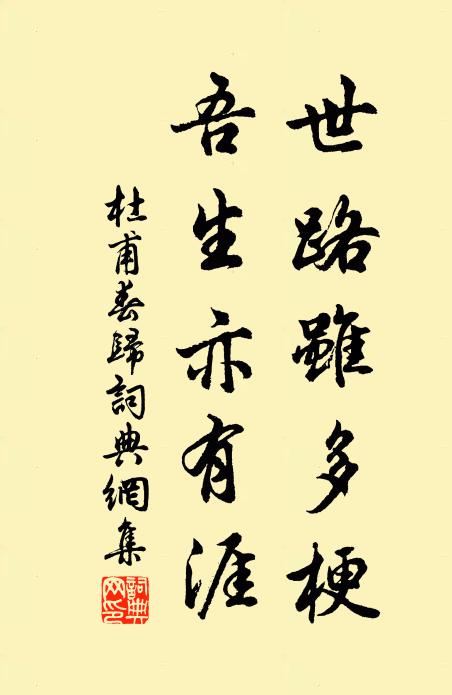 世路雖多梗
吾生亦有涯
杜甫春歸詞典網集
詞典網印